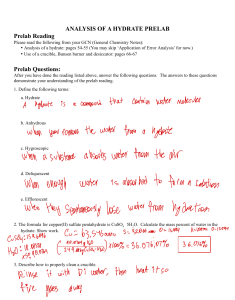 ANALYSIS OF A HYDRATE PRELAB
Prelab Reading
Please read the following from your GCN (General Chemistry Notes)
• Analysis of a hydrate: pages 54-55 (You may skip 'Application of Error Analysis' for now.)
• Use of a crucible, Bunsen burner and desiccator: pages 66-67
Prelab Questions:
After you have done the reading listed above, answer the following questions. The answers to these questions
demonstrate your understanding of the prelab reading.
1. Define the following terms:
a. Hydrate
A hydrate is a compounds that contain water molecules
b. Anhydrous
When you remove the water from a hydrate
c. Hygroscopic
when a substance absorbs water from the air
d. Deliquescent
When enough water is absorbed to form a
e. Efflorescent
When they spontaneously lose water from hydration
2. The formula for copper(II) sulfate pentahydrate is CuSO4 · 5H2O. Calculate the mass percent of water in the
hydrate. Show work.
100% = 36.076,07%
3. Describe how to properly clean a crucible.
Rinse it with DI water, then heat it so
fire goes away